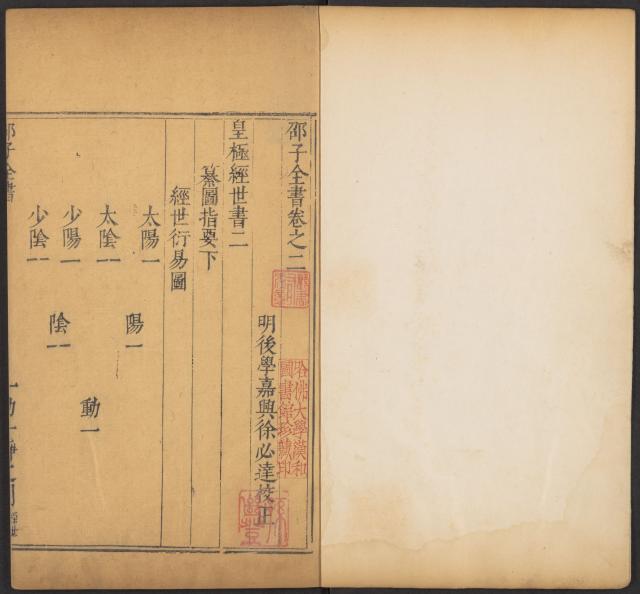 邵子全書卷之二
明後學嘉興徐必達校正
皇極經世書二
纂圖指要下
經世衍易圖
太陽
陽
太陰
動
少陽
陰
少陰
邵子全書
哈佛大學漢和
圖書館珍藏印